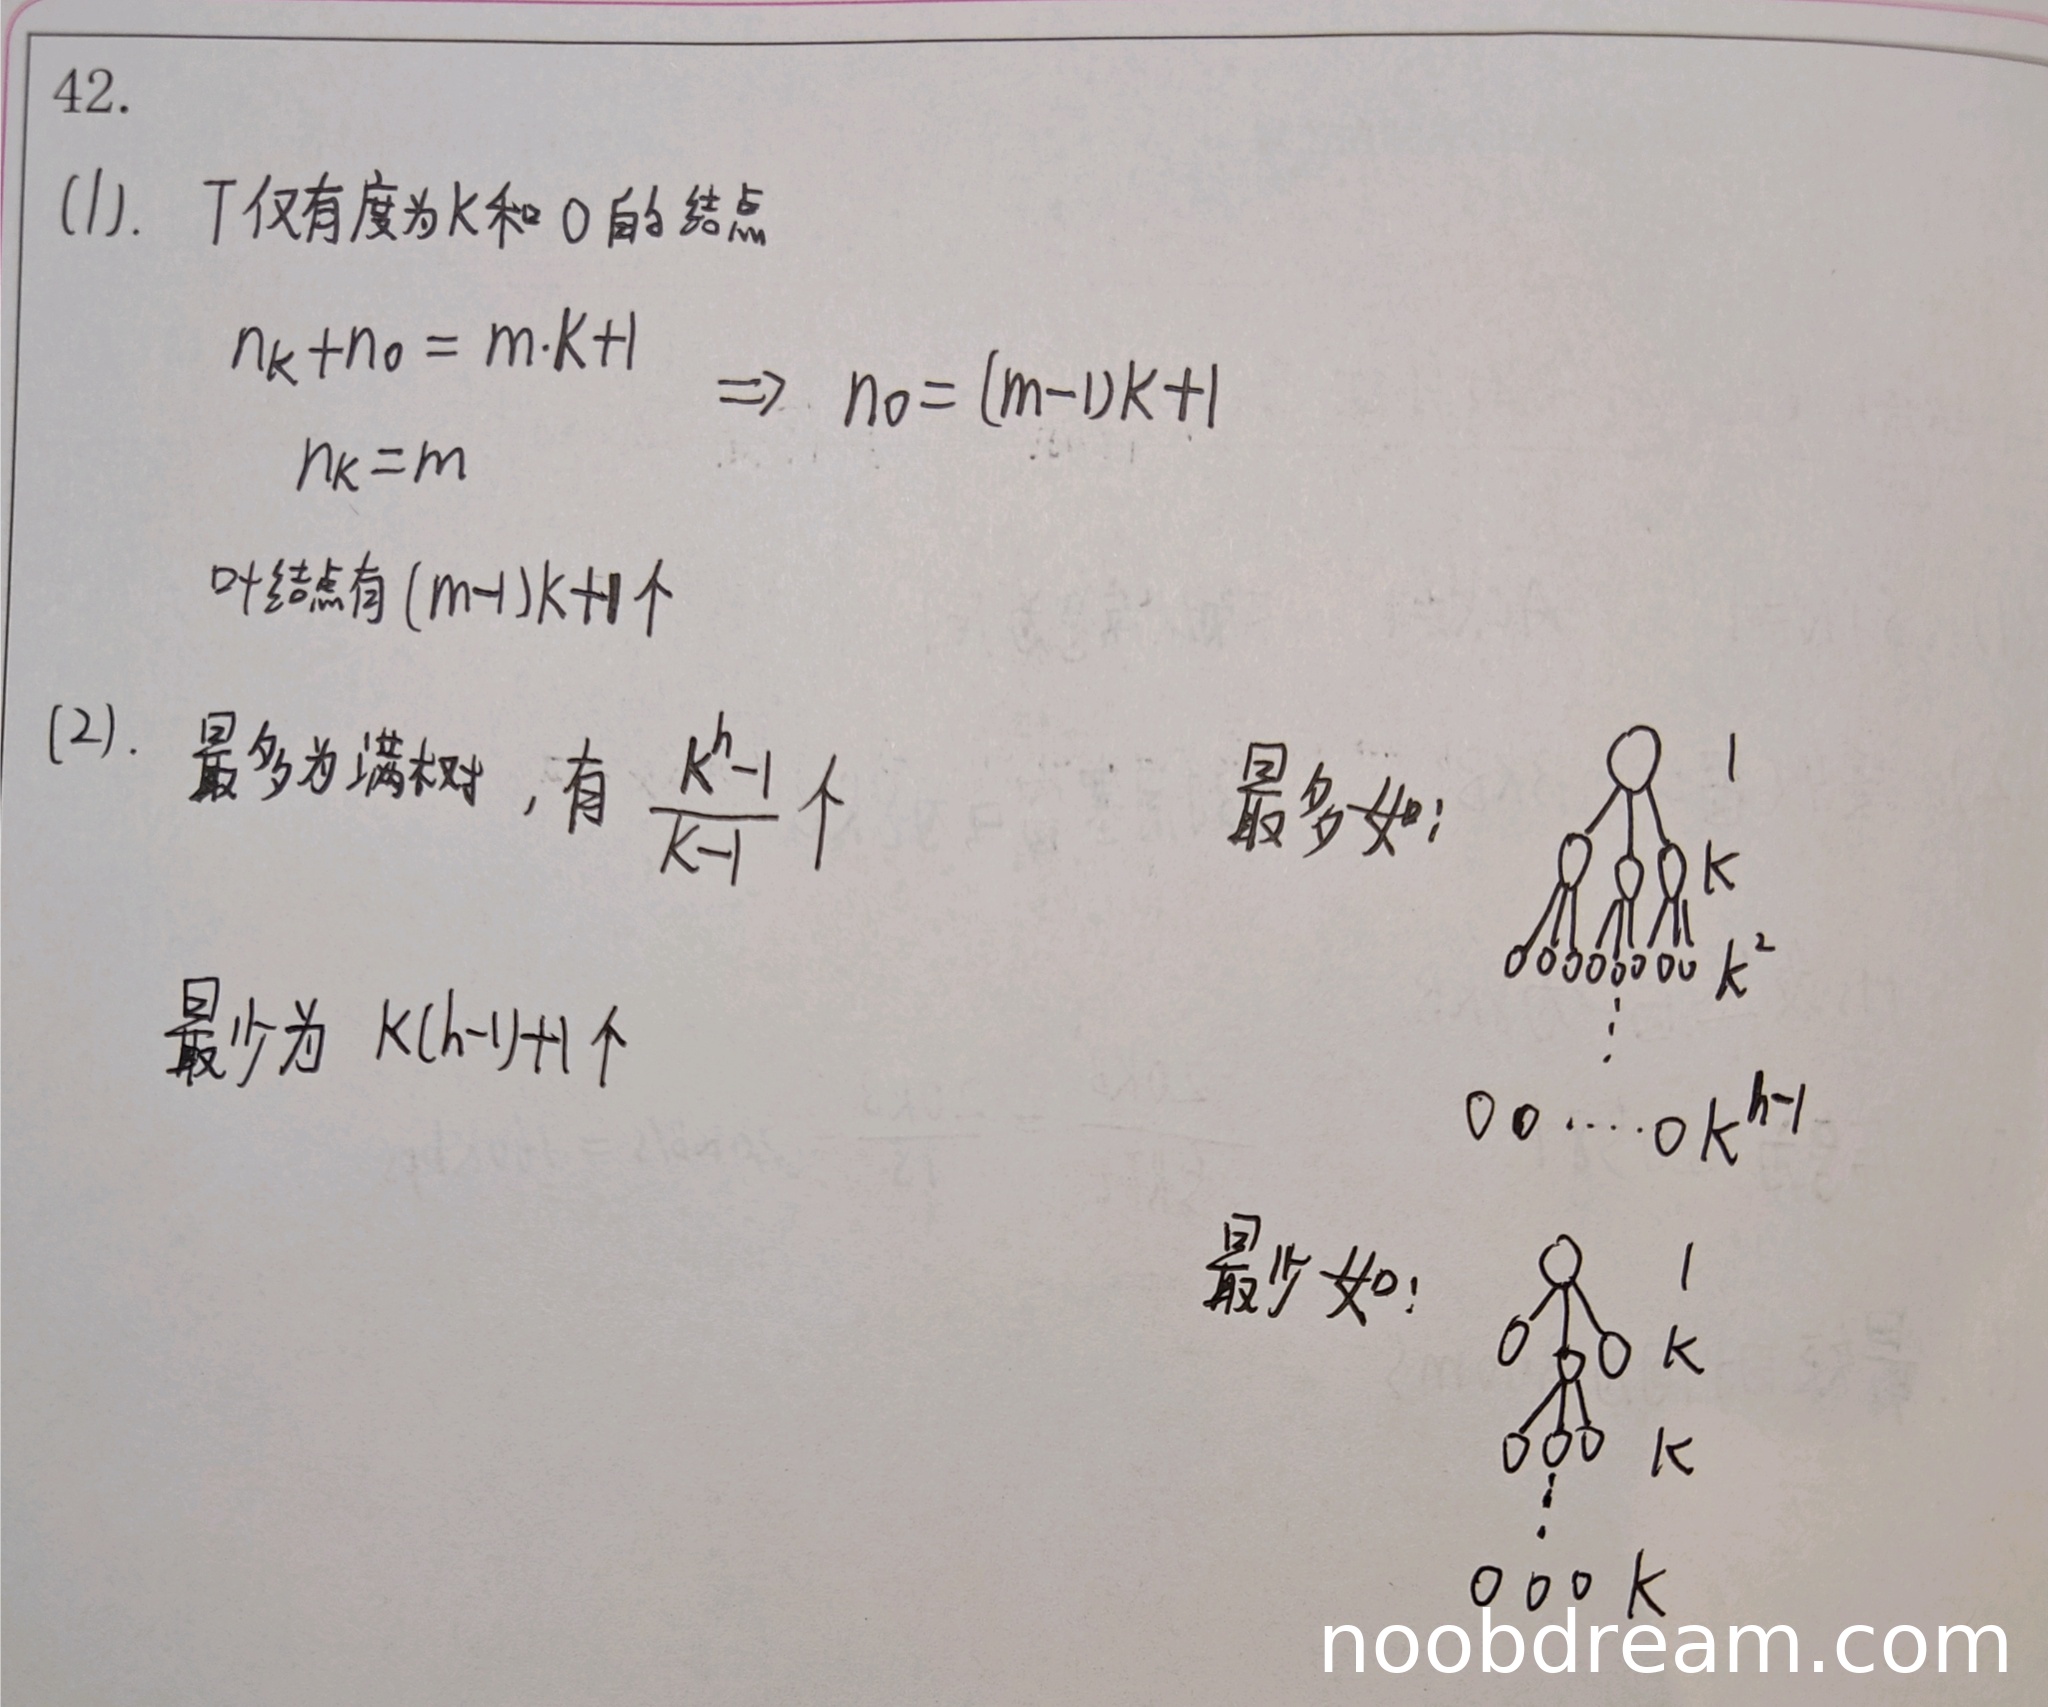 42.
(1). T仅有度为K和0的结点
nₖ+n₀ = m·K+1
⇒ n₀ = (m-1)K+1
nₖ = m
叶结点有(m-1)K+1个
(2). 最多为满树，有 (K^h-1)/(K-1) 个
最多如:
1
K
K²
K^(h-1)
最少为 K(h-1)+1个
最少如:
1
K
K
K
noobdream.com